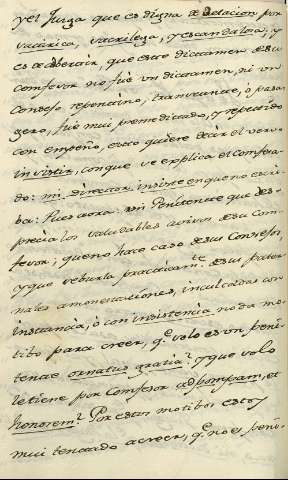 y el Juzga que es digna de delacion por
vacirica, sacrilega, y escandalosa, y
es de advertir, que este dictamen de su
comfesor no fué un dictamen, ni un
Consejo repentino, transeunte, ó pasa
gero, fué mui premeditado, y repetido
con empeño, esto quiere decir el verbo
insistir, con que se explica el Comfesa-
do: mi director insiste en que no escri-
ba: Pues aora: un Penitente que des-
precia los saludables avisos de su Com-
fesor, que no hace caso de sus Consejos,
y que se burla practicam.te de sus pater-
nales amonestaciones, inculcadas con
instancia, ó con insistencia no da mo-
tibo para creer, q.e solo es un peni-
tente ornatus gratia? y que solo
le tiene por Comfesor ad pompam, et
honorem? Por estos motibos estoy
mui tentado a creer, q.e no es peni-